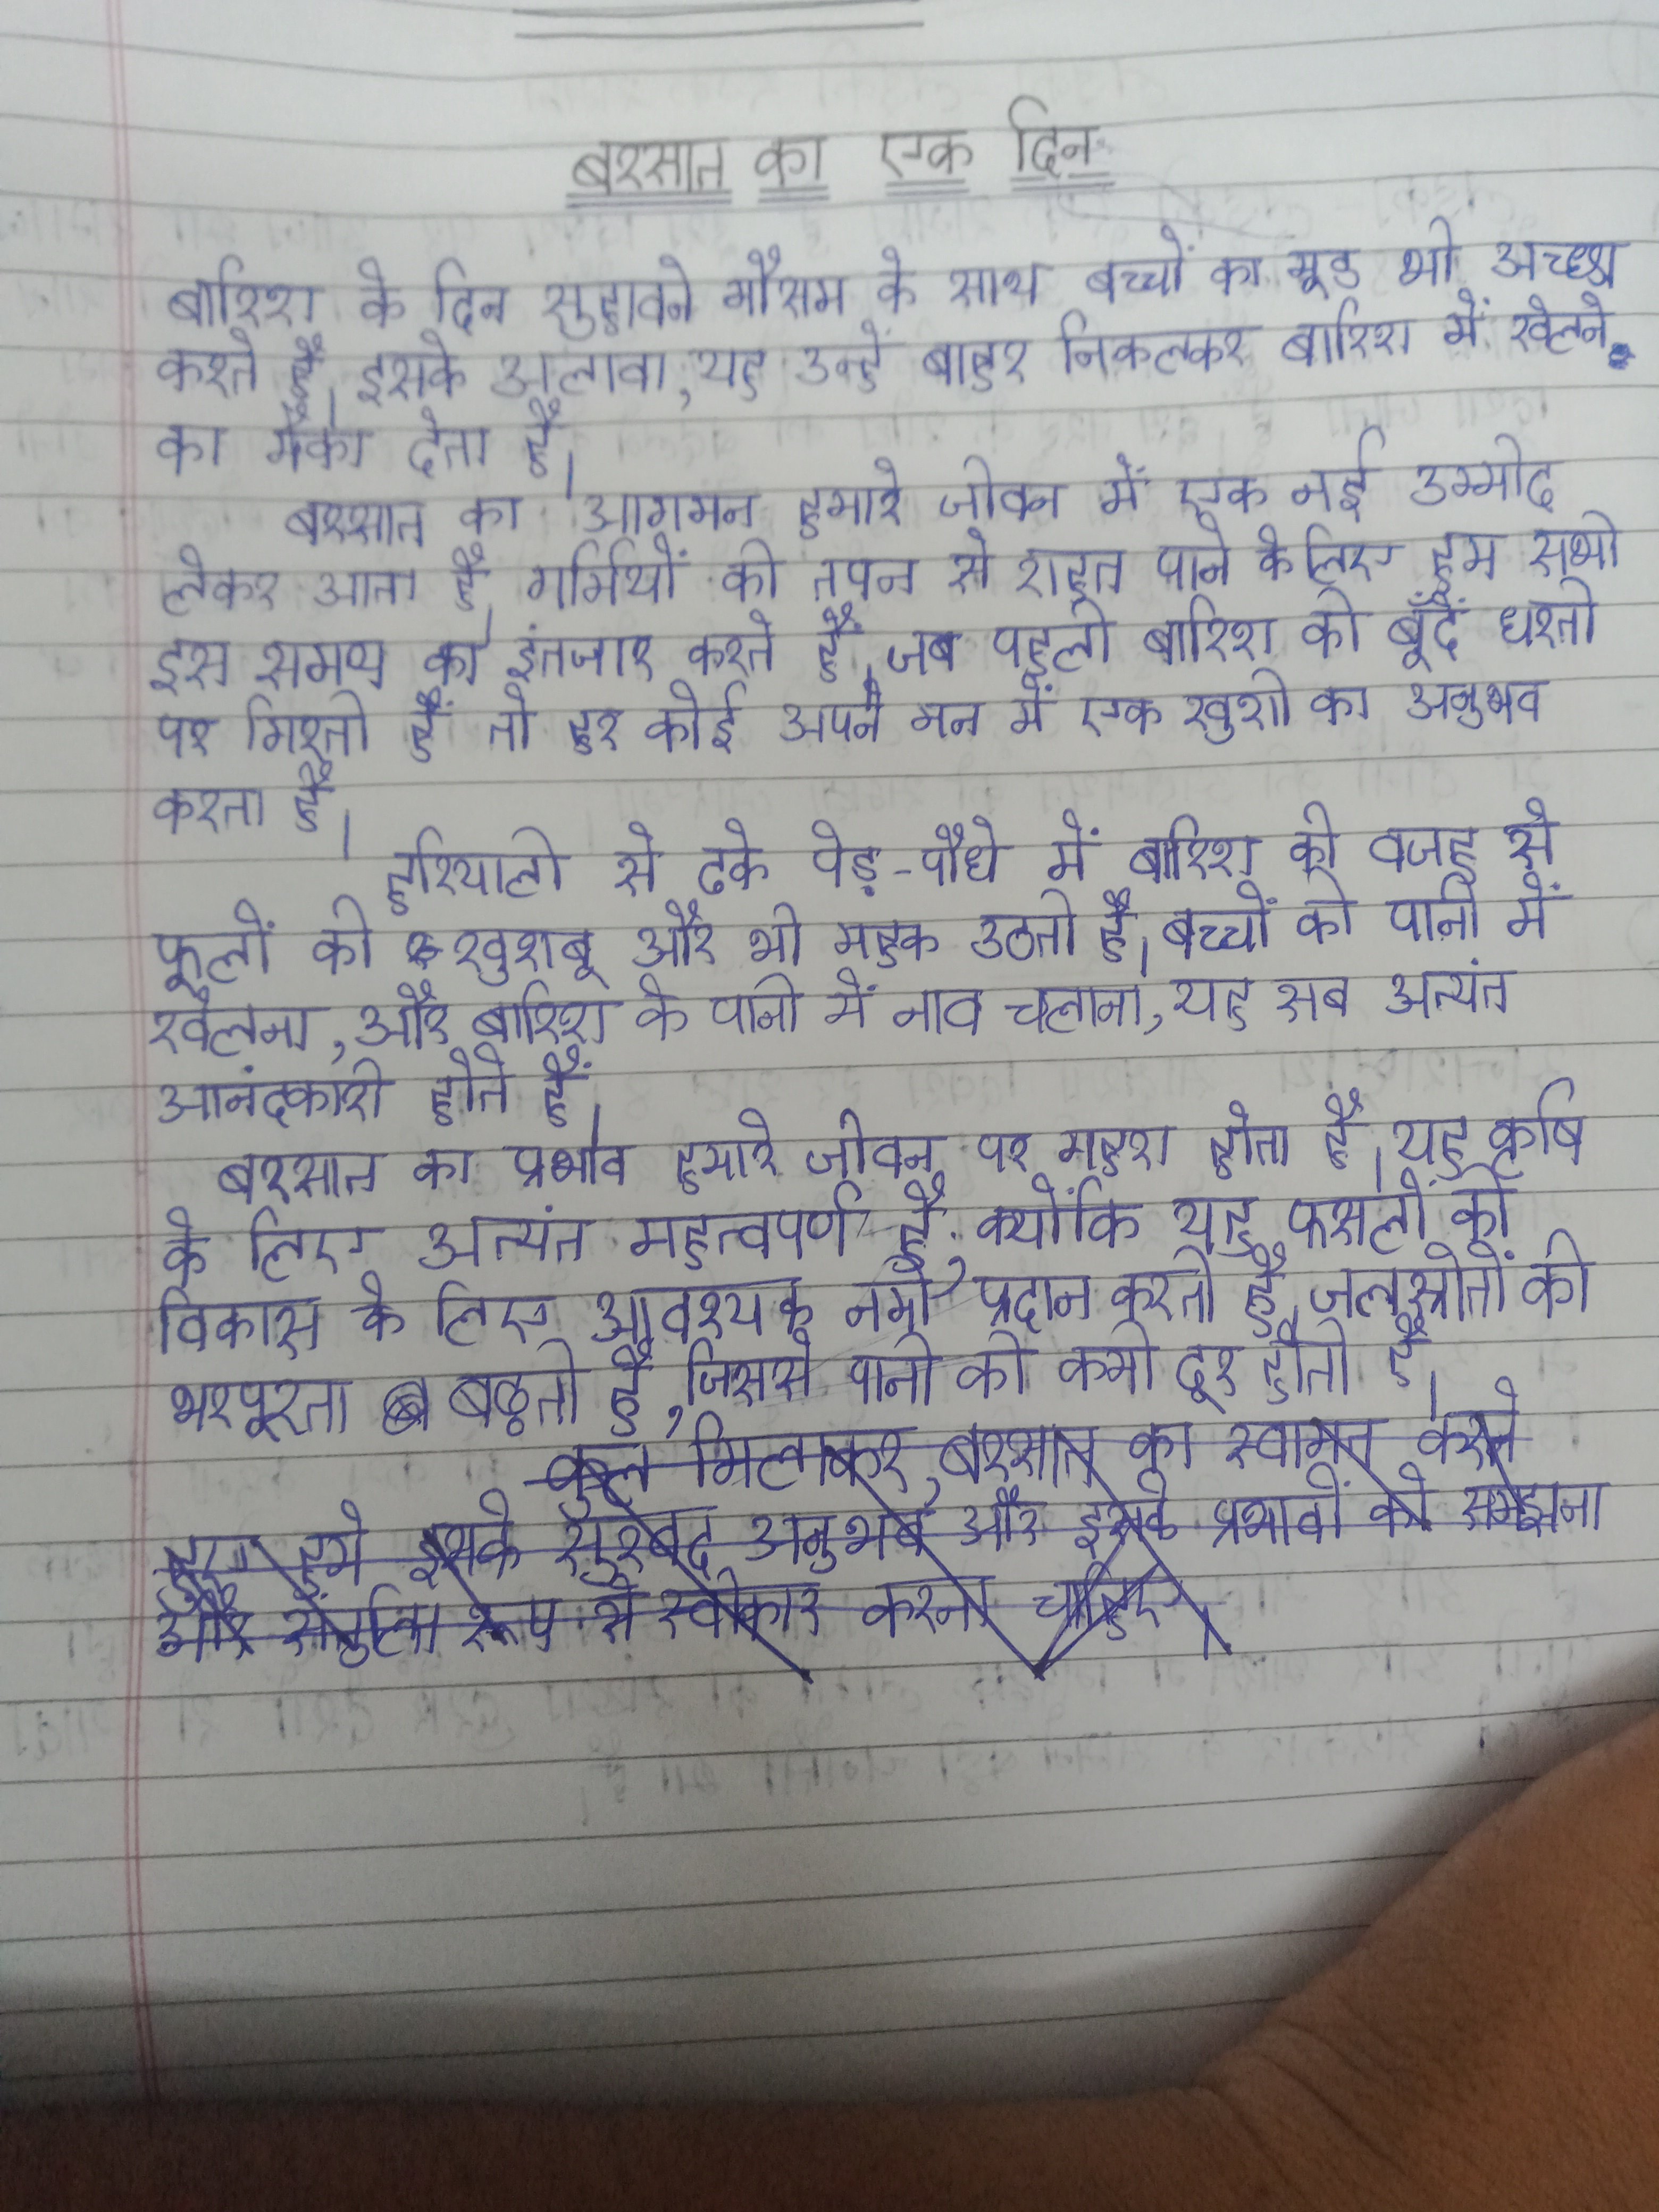 बरसात का एक दिन
बारिश के दिन सुहावने मौसम के साथ बच्चों का मूड भी अच्छा
करते हैं। इसके अलावा, यह उन्हें बाहर निकलकर बारिश में खेलने
का मौका देता है।
बरसात का आगमन हमारे जीवन में एक नई उम्मीद
लेकर आता है। गर्मियों की तपन से राहत पाने के लिए हम सभी
इस समय का इंतजार करते हैं। जब पहली बारिश की बूँदें धरती
पर गिरती हैं तो हर कोई अपने मन में एक खुशी का अनुभव
करता है।
हरियाली से ढके पेड़-पौधे में बारिश की वजह से
फूलों की खुशबू और भी महक उठती है। बच्चों को पानी में
खेलना, और बारिश के पानी में नाव चलाना, यह सब अत्यंत
आनंदकारी होते हैं।
बरसात का प्रभाव हमारे जीवन पर गहरा होता है। यह कृषि
के लिए अत्यंत महत्वपर्ण है, क्योंकि यह फसलों की
विकास के लिए आवश्यक नमी प्रदान करती है। जलस्रोतों की
भरपूरता बढ़ती है, जिससे पानी की कमी दूर होती है।
कुल मिलाकर, बरसात का स्वागत करते
हुए हमें इसके सुखद अनुभव और इसके प्रभावों को समझना
और संतुलित रूप से स्वीकार करना चाहिए